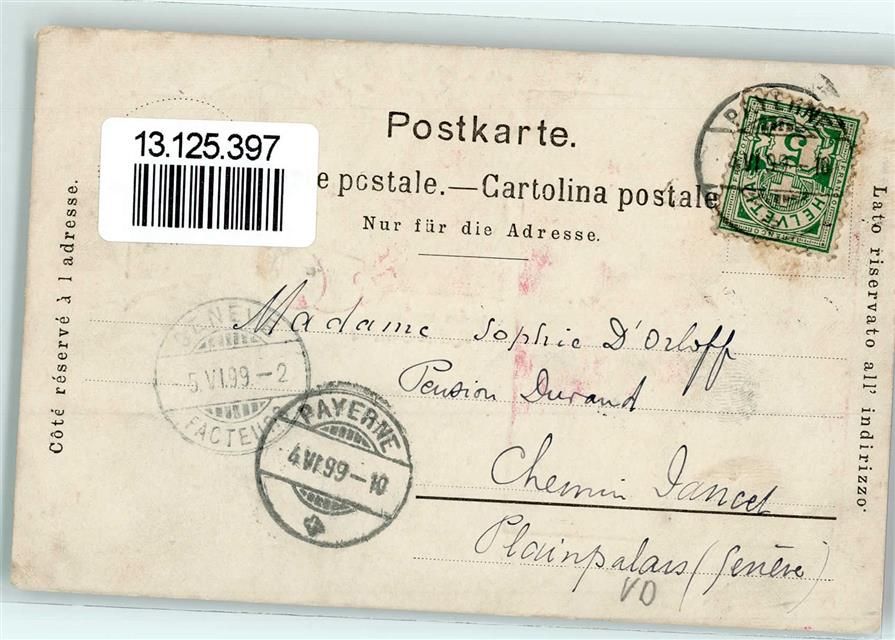 13.125.397
Postkarte.
e postale.—Cartolina postale
Nur für die Adresse.
Côté réservé à l adresse.
Lato riservato all' indirizzo.
5
HELVETIA
4 VI.99 - 10
GENEVE
5.VI.99.-2
FACTEUR
PAYERNE
4.VI.99-10
Madame Sophie D'Orloff
Pension Durand
Chemin Dancet
Plainpalais (Genève)
VD